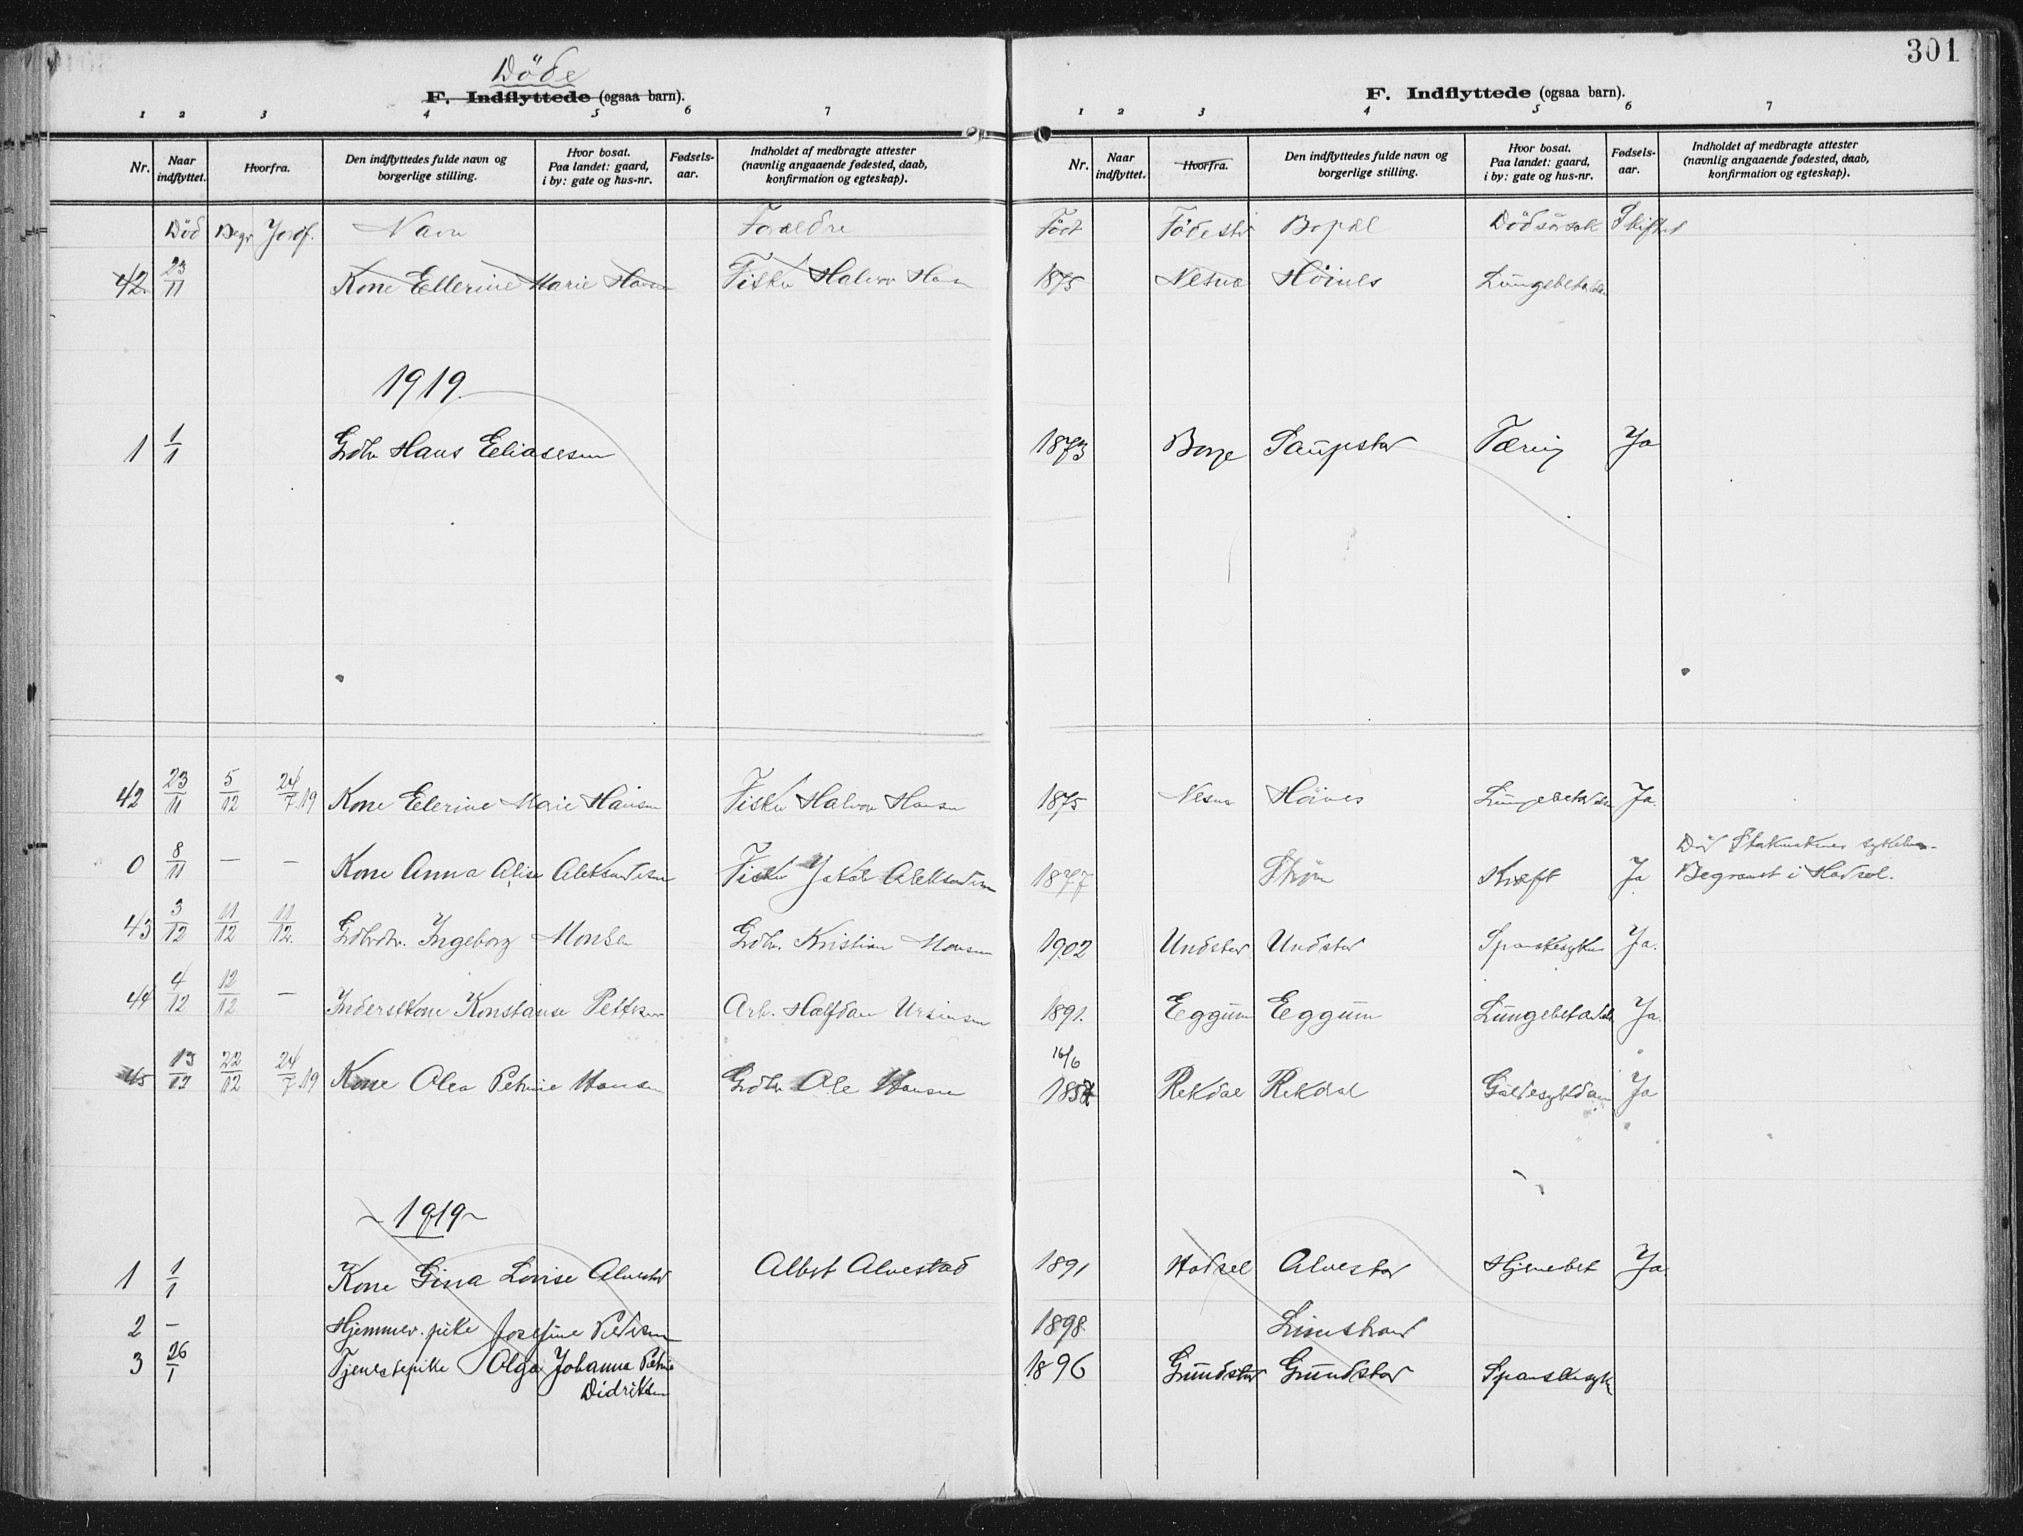 301
Døde
F. Indflyttede (ogsaa barn).
1 2 3 4 5 6 7
Nr. Naar indflyttet. Hvorfra. Den indflyttedes fulde navn og borgerlige stilling. Hvor bosat. Paa landet: gaard, i by: gate og hus-nr. Fødselsaar. Indholdet af medbragte attester (navnlig angaaende fødested, daab, konfirmation og egteskap).
F. Indflyttede (ogsaa barn).
1 2 3 4 5 6 7
Nr. Naar indflyttet. Hvorfra. Den indflyttedes fulde navn og borgerlige stilling. Hvor bosat. Paa landet: gaard, i by: gate og hus-nr. Fødselsaar. Indholdet af medbragte attester (navnlig angaaende fødested, daab, konfirmation og egteskap).
Død Begr Jordf. Navn Foreldre Født Fødested Bopæl Dødsårsak Skiftet
42 23/11 Kone Ellerine Marie Hansen Fisker Halvor Hansen 1875 Nesna Høines
1919.
1 1/1 Gdbr Hans Eliasesen 1873 Borge Saupstad Tæring Ja
42 23/11 5/12 24/7 19 Kone Elerine Marie Hansen Fisker Halvor Hansen 1875 Nesna Høines Ja.
Død Stokmarknes sykehus.
0 8/11 — — Kone Anna Alise Aleksandersen Fisker Jakob Aleksandersen 1877 Strøm Kræft Ja Begravet i Hadsel.
43 3/12 11/12 11/12. Gdbrdtr. Ingeborg Monsen Gdbr. Kristian Monsen 1902 Undstad Undstad Spanskesyken Ja.
44 4/12 12/12 — Inderstkone Konstanse Pettersen Arb. Halfdan 1891. Eggum Eggum Ja.
16/6
45 13/12 22/12 24/7 19 Kone Olea Petrine Hansen Gdbr Ole Hansen Rekdal Rekdal Ja
~ 1919 ~
1 1/1 Kone Gina Lovise Alvestad Albert Alvestad 1891 Hadsel Alvestad Hjernebet Ja
2 — Hjemmev. pike Josefine 1898. Limstrand
3 26/1 Tjenestepike Olga Johanna Petrine 1896 Grundstad Grundstad Spanskesyk
Didriksen